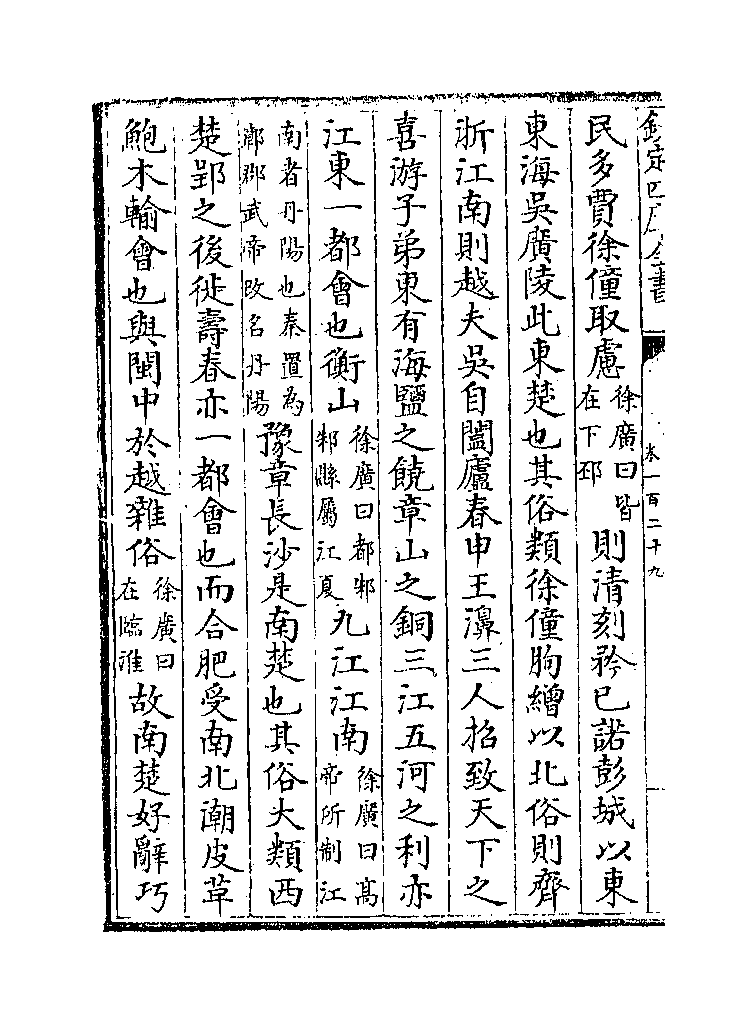 欽定四庫全書 卷一百二十九
民多賈徐僮取慮徐廣曰皆在下邳則清刻矜已諾彭城以東
東海吳廣陵此東楚也其俗類徐僮朐繒以北俗則齊
浙江南則越夫吳自闔廬春申王濞三人招致天下之
喜游子弟東有海鹽之饒章山之銅三江五河之利亦
江東一都會也衡山徐廣曰都邾邾縣屬江夏九江江南徐廣曰髙帝所制江
南者丹陽也秦置為鄣郡武帝改名丹陽豫章長沙是南楚也其俗大類西
楚郢之後徙壽春亦一都會也而合肥受南北潮皮草
鮑木輸會也與閩中於越雜俗徐廣曰在臨淮故南楚好辭巧